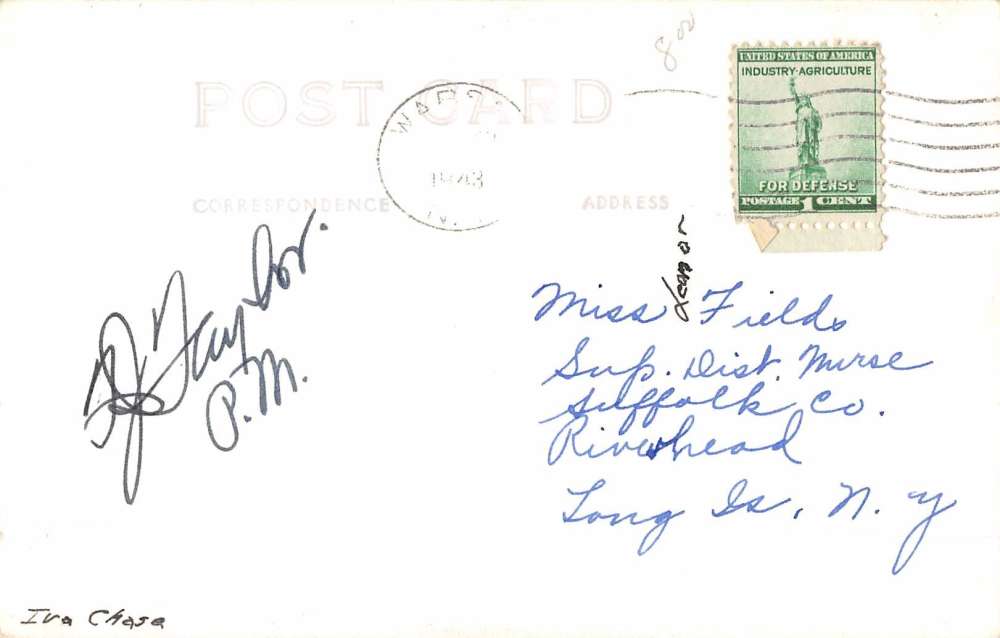 800
UNITED STATES OF AMERICA
INDUSTRY·AGRICULTURE
FOR DEFENSE
POSTAGE 1 CENT
POST CARD
1943
N.
CORRESPONDENCE
ADDRESS
Taylor.
P.M.
Lenor
Miss Fields
Sup. Dist. Nurse
Suffolk Co.
Riverhead
Long Is, N. Y
Iva Chase